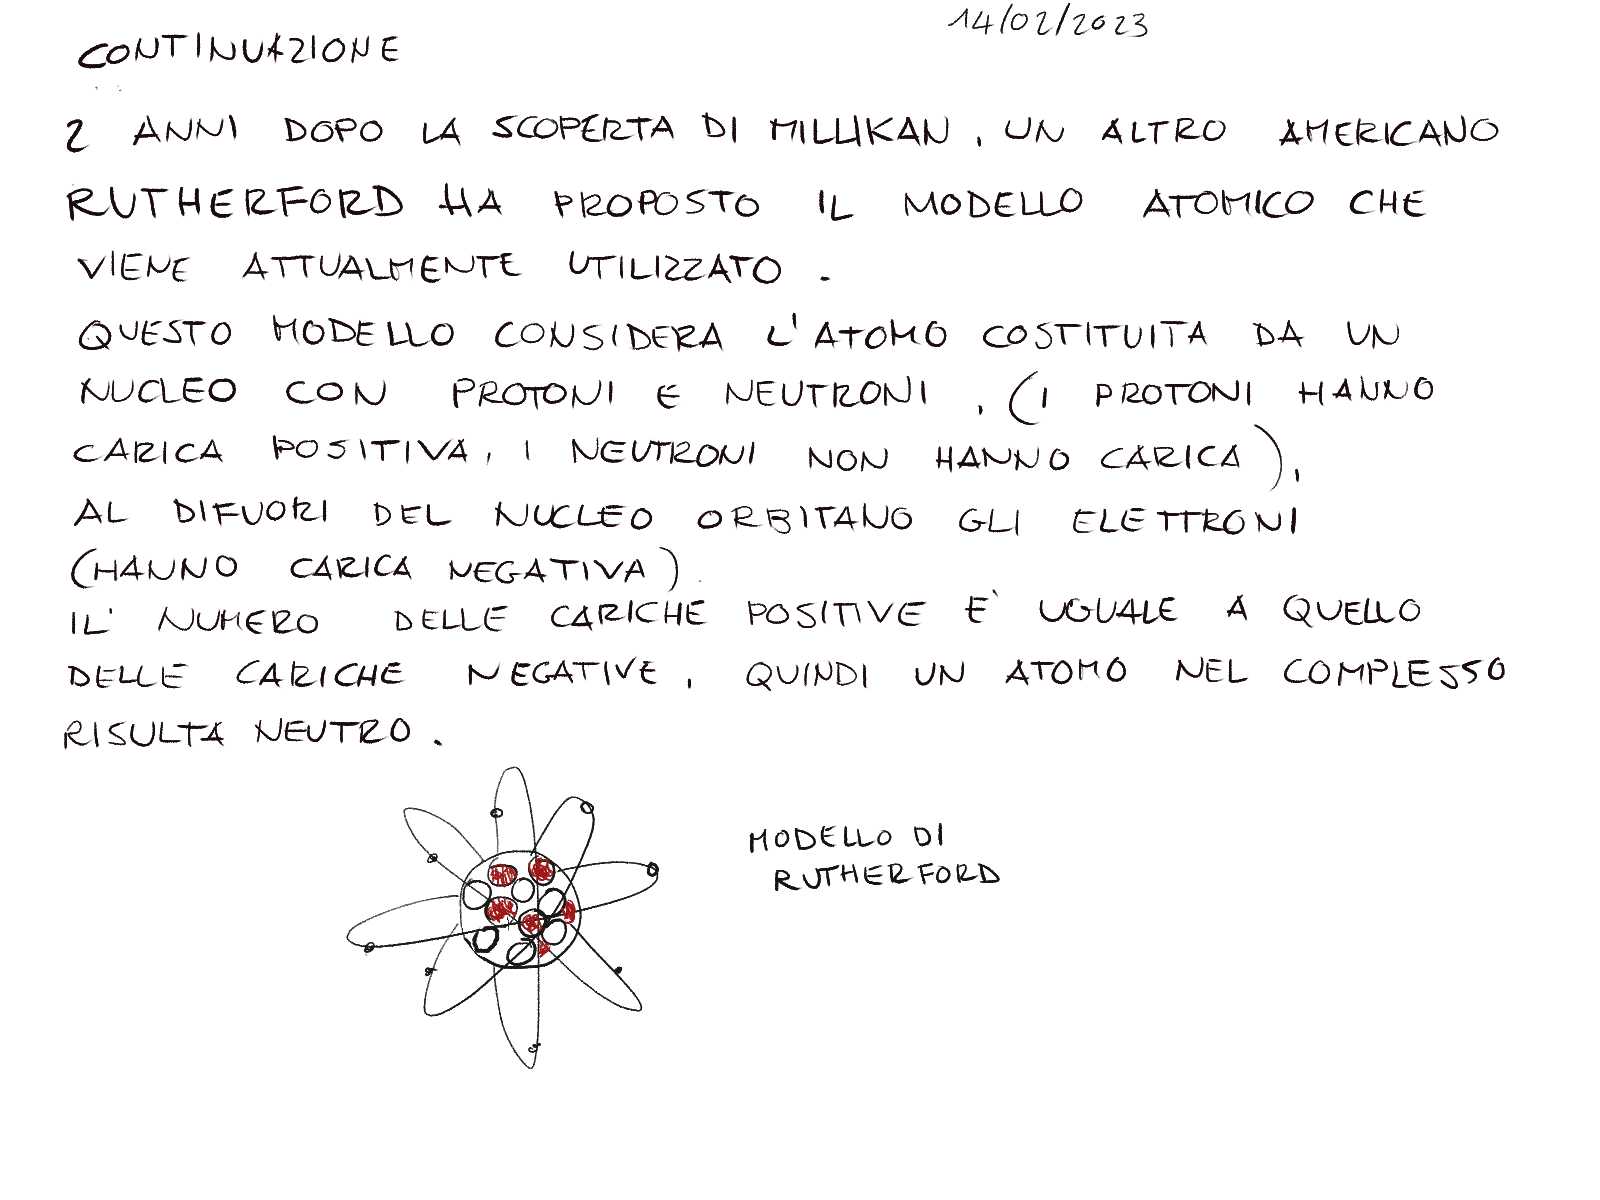 14/02/2023
CONTINUAZIONE
2 ANNI DOPO LA SCOPERTA DI MILLIKAN, UN ALTRO AMERICANO
RUTHERFORD HA PROPOSTO IL MODELLO ATOMICO CHE
VIENE ATTUALMENTE UTILIZZATO.
QUESTO MODELLO CONSIDERA L'ATOMO COSTITUITA DA UN
NUCLEO CON PROTONI E NEUTRONI, (I PROTONI HANNO
CARICA POSITIVA, I NEUTRONI NON HANNO CARICA),
AL DIFUORI DEL NUCLEO ORBITANO GLI ELETTRONI
(HANNO CARICA NEGATIVA)
IL' NUMERO DELLE CARICHE POSITIVE E' UGUALE A QUELLO
DELLE CARICHE NEGATIVE, QUINDI UN ATOMO NEL COMPLESSO
RISULTA NEUTRO.
MODELLO DI
RUTHERFORD